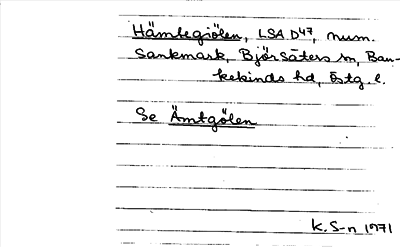 Hämtegiölen, LSA. D47, num.
Sankmark, Björsäters sn, Ban-
kekinds hd, Östg. l.
Se Ämtgölen
K. S-n 1971